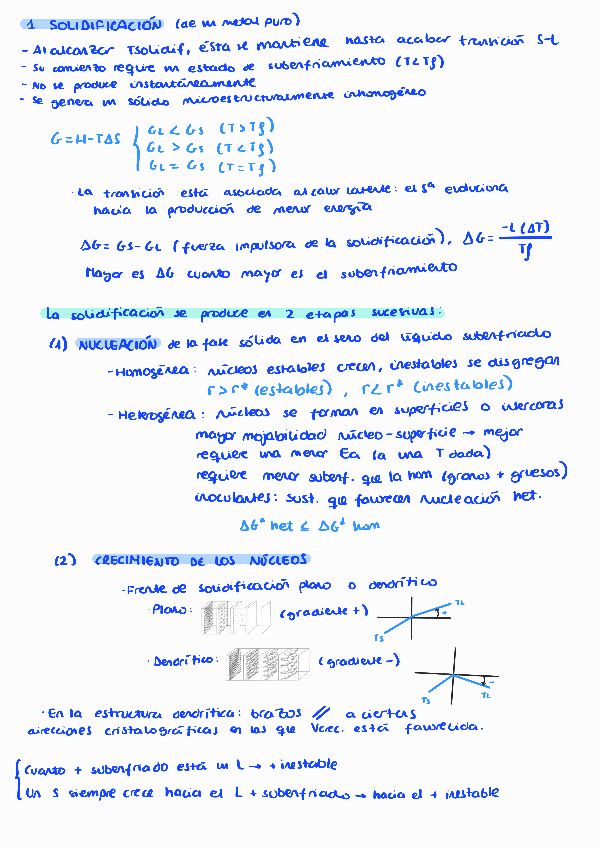 1 SOLIDIFICACIÓN (de un metal puro)
- Al alcanzar Tsolidif, ésta se mantiene hasta acabar transición S-L
- Su comienzo require un estado de subenfriamiento (T<Tf)
- No se produce instantáneamente
- Se genera un sólido microestructuralmente inhomogéneo
G=H-TΔS { GL < GS (T>Tf)
GL > GS (T<Tf)
GL = GS (T=Tf)
· La transición está asociada al calor latente: el Sª evoluciona
hacia la producción de menor energía
ΔG= GS-GL (fuerza impulsora de la solidificación), ΔG= -L(ΔT) / Tf
Mayor es ΔG cuanto mayor es el subenfriamiento
La solidificación se produce en 2 etapas sucesivas:
(1) NUCLEACIÓN de la fase sólida en el seno del líquido subenfriado
- Homogénea: núcleos estables crecen, inestables se disgregan
r>r* (estables) , r<r* (inestables)
- Heterogénea: núcleos se forman en superficies o intercaras
mayor mojabilidad núcleo-superficie → mejor
requiere una menor Ea (a una T dada)
requiere menor subenf. que la hom (granos + gruesos)
inoculantes: sust. que favorecen nucleación het.
ΔG* het < ΔG* hom
(2) CRECIMIENTO DE LOS NÚCLEOS
· Frente de solidificación plano o dendrítico
· Plano: (gradiente +)
TL
+
TS
· Dendrítico: (gradiente -)
-
TS TL
· En la estructura dendrítica: brazos // a ciertas
direcciones cristalográficas en las que Vcrec. está favorecida.
{ Cuanto + subenfriado está un L → + inestable
Un S siempre crece hacia el L + subenfriado → hacia el + inestable